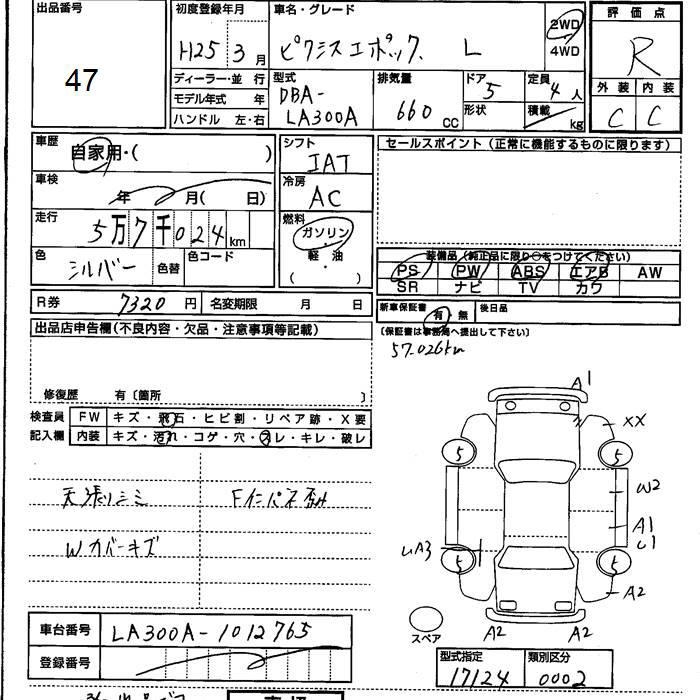 出品番号
47
初度登録年月
H25 3月
車名・グレード
ピクシスエポック L
2WD
4WD
評価点
R
外装 内装
C C
ディーラー・並 行
モデル年式 年
ハンドル 左・右
型式
DBA-
LA300A
排気量
660 CC
ドア
5
形状
定員
4人
積載
kg
車歴
自家用・( )
シフト
IAT
セールスポイント(正常に機能するものに限ります)
車検
年 月( 日)
冷房
AC
走行
5万7千024km
燃料
ガソリン
・
軽油
( )
色
シルバー
色替
色コード
装備品(純正品に限り○をつけてください)
PS PW ABS エアB AW
SR ナビ TV カワ
R券 7320円
名変期限 月 日
新車保証書
有・無
後日品
(保証書は事務局へ提出して下さい)
57.026km
出品店申告欄(不良内容・欠品・注意事項等記載)
修復歴 有〔箇所 〕
検査員
記入欄
FW キズ・飛石・ヒビ割・リペア跡・X要
内装 キズ・汚れ・コゲ・穴・スレ・キレ・破レ
天張りシミ
Wカバーキズ
A1
XX
5 5
W2
A1
U1
UA3
5 5
A2
A2 A2
スペア
車台番号 LA300A-1012765
登録番号
型式指定
17124
類別区分
0002